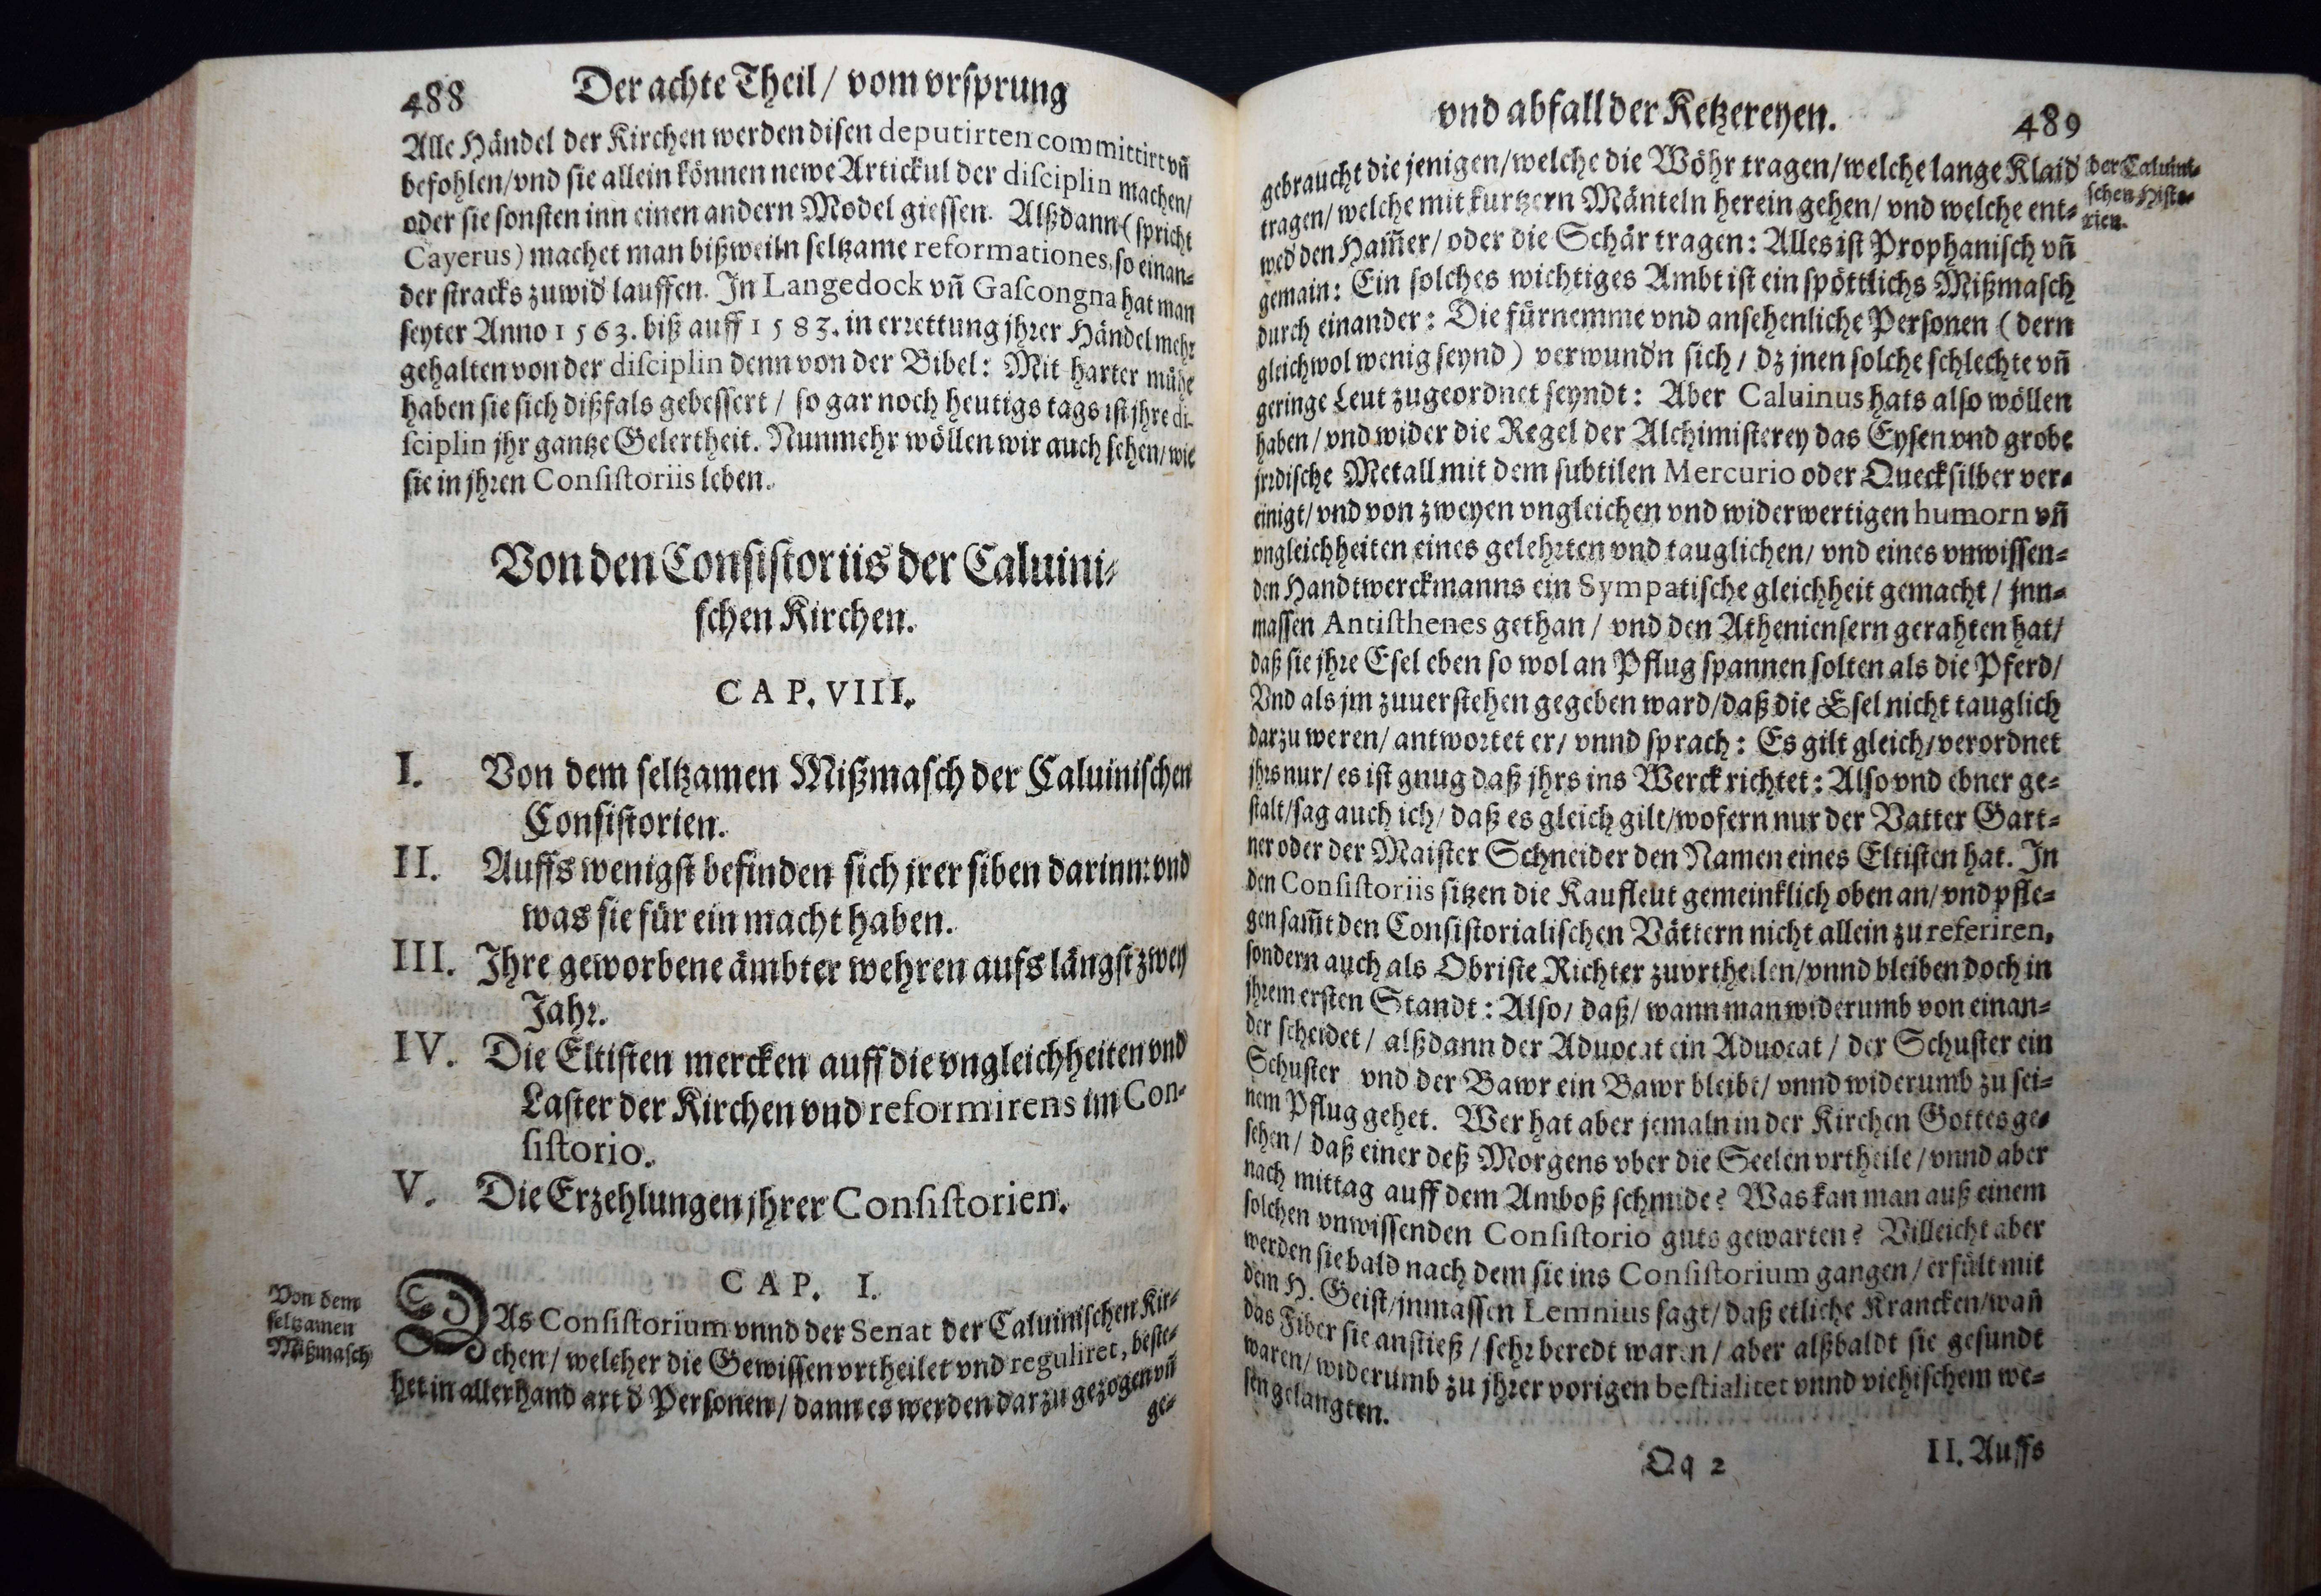 488 Der achte Theil / vom vrsprung
Alle Händel der Kirchen werden disen deputirten committirt vñ
befohlen / vnd sie allein können newe Artickul der disciplin machen /
oder sie sonsten inn einen andern Model giessen. Alßdann (spricht
Cayerus) machet man bißweiln seltzame reformationes, so einan-
der stracks zuwid lauffen. In Langedock vñ Gascongna hat man
seyter Anno 1563. biß auff 1583. in errettung jhrer Händel mehr
gehalten von der disciplin denn von der Bibel: Mit harter mühe
haben sie sich dißfals gebessert / so gar noch heutigs tags ist jhre di-
sciplin jhr gantze Gelertheit. Nunmehr wöllen wir auch sehen / wie
sie in jhren Consistoriis leben.
Von den Consistoriis der Caluini-
schen Kirchen.
CAP. VIII.
I. Von dem seltzamen Mißmasch der Caluinischen
Consistorien.
II. Auffs wenigst befinden sich jrer siben darinn: vnd
was sie für ein macht haben.
III. Ihre geworbene ämbter wehren aufs längst zwey
Jahr.
IV. Die Eltisten mercken auff die vngleichheiten vnd
Laster der Kirchen vnd reformirens im Con-
sistorio.
V. Die Erzehlungen jhrer Consistorien.
CAP. I.
Von dem
seltzamen
Mißmasch
DAs Consistorium vnnd der Senat der Caluinischen Kir-
chen / welcher die Gewissen vrtheilet vnd reguliret, beste-
het in allerhand art d Personen / dann es werden darzu gezogen vñ
ge-
vnd abfall der Ketzereyen. 489
gebraucht die jenigen / welche die Wöhr tragen / welche lange Klaid
tragen / welche mit kurtzern Mänteln herein gehen / vnd welche ent-
wed den Ham̃er / oder die Schär tragen: Alles ist Prophanisch vñ
gemain: Ein solches wichtiges Ambt ist ein spöttlichs Mißmasch
durch einander: Die fürnemme vnd ansehenliche Personen (dern
gleichwol wenig seynd) verwundn sich / dz jnen solche schlechte vñ
geringe Leut zugeordnet seyndt: Aber Caluinus hats also wöllen
haben / vnd wider die Regel der Alchimisterey das Eysen vnd grobe
jrrdische Metall mit dem subtilen Mercurio oder Quecksilber ver-
einigt / vnd von zweyen vngleichen vnd widerwertigen humorn vñ
vngleichheiten eines gelehrten vnd tauglichen / vnd eines vnwissen-
den Handtwerckmanns ein Sympatische gleichheit gemacht / jnn-
massen Antisthenes gethan / vnd den Atheniensern gerahten hat /
daß sie jhre Esel eben so wol an Pflug spannen solten als die Pferd /
Vnd als jm zuuerstehen gegeben ward / daß die Esel nicht tauglich
darzu weren / antwortet er / vnnd sprach: Es gilt gleich / verordnet
jhrs nur / es ist gnug daß jhrs ins Werck richtet: Also vnd ebner ge-
stalt / sag auch ich / daß es gleich gilt / wofern nur der Vatter Gart-
ner oder der Maister Schneider den Namen eines Eltisten hat. In
den Consistoriis sitzen die Kaufleut gemeinklich oben an / vnd pfle-
gen sam̃t den Consistorialischen Vättern nicht allein zu referiren,
sondern auch als Obriste Richter zuvrtheilen / vnnd bleiben doch in
jhrem ersten Standt: Also / daß / wann man widerumb von einan-
der scheidet / alßdann der Aduocat ein Aduocat / der Schuster ein
Schuster vnd der Bawr ein Bawr bleibt / vnnd widerumb zu sei-
nem Pflug gehet. Wer hat aber jemaln in der Kirchen Gottes ge-
sehen / daß einer deß Morgens vber die Seelen vrtheile / vnnd aber
nach mittag auff dem Amboß schmide? Was kan man auß einem
solchen vnwissenden Consistorio guts gewarten? Villeicht aber
werden sie bald nach dem sie ins Consistorium gangen / erfült mit
dem H. Geist / jnmassen Lemnius sagt / daß etliche Krancken / wañ
das Fiber sie anstieß / sehr beredt waren / aber alßbaldt sie gesundt
waren / widerumb zu jhrer vorigen bestialitet vnnd viehischem we-
sen gelangten.
der Caluini-
schen Histo-
rien.
Qq 2 II. Auffs